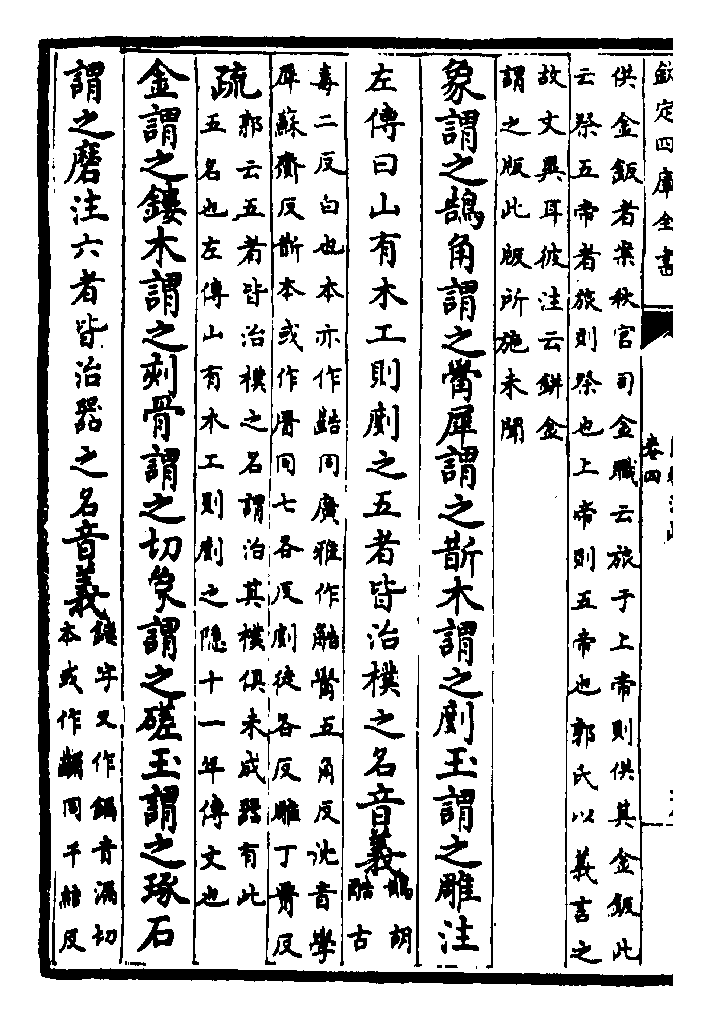 欽定四庫全書
卷四
供金鈑者案秋官司金職云旅于上帝則供其金鈑此
云祭五帝者旅則祭也上帝則五帝也郭氏以義言之
故文異耳彼注云鉼金
謂之版此版所施未聞
象謂之鵠角謂之觷犀謂之斮木謂之剫玉謂之雕注
左傳曰山有木工則剫之五者皆治樸之名音義
鵠胡
酷古
毒二反白也本亦作同廣雅作觷五角反沈音學
犀蘇齊反斮本或作厝同七各反剫徒各反雕丁寮反
疏
郭云五者皆治樸之名謂治其樸俱未成器有此
五名也左傳山有木工則剫之隱十一年傳文也
金謂之鏤木謂之刻骨謂之切象謂之磋玉謂之琢石
謂之磨注六者皆治器之名音義
鏤字又作音漏切
本或作同千結反